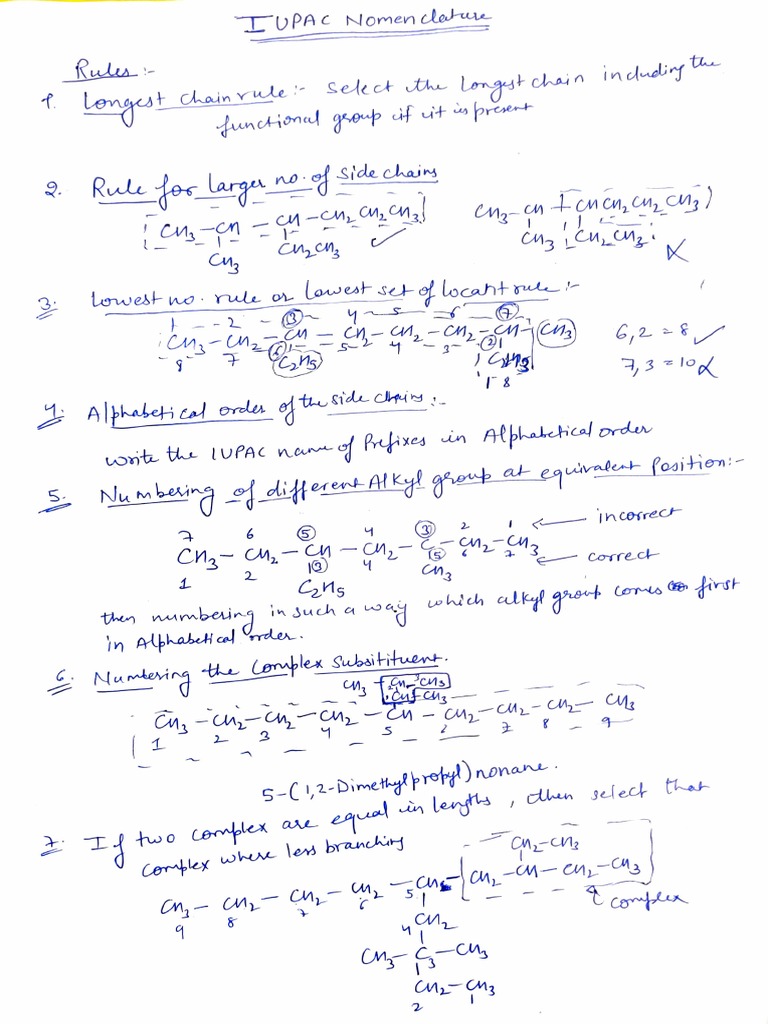 IUPAC Nomenclature
Rules:-
1. Longest chain rule:- Select the longest chain including the
functional group if it is present
2. Rule for larger no. of side chains
CH3-CH-CH-CH2CH2CH3
CH3 CH2CH3 ✓
CH3-CH-(CHCH2CH2CH3)
CH3 CH2CH3 X
3. Lowest no. rule or lowest set of locant rule:-
1 2 3 4 5 6 7
CH3-CH2-CH-CH2-CH2-CH2-CH-CH3
8 7 6 5 4 3 2
C2H5
1 8
6,2 = 8 ✓
7,3 = 10 X
4. Alphabetical order of the side chains:-
Write the IUPAC name of Prefixes in Alphabetical order
5. Numbering of different Alkyl group at equivalent Position:-
7 6 5 4 3 2 1 ← incorrect
CH3-CH2-CH-CH2-C-CH2-CH3
1 2 3 4 5 6 7 ← correct
C2H5 CH3
then numbering in such a way which alkyl group comes first
in Alphabetical order.
6. Numbering the Complex Substitituent.
CH3-2CH-3CH3
1CH-CH3
CH3-CH2-CH2-CH2-CH-CH2-CH2-CH2-CH3
1 2 3 4 5 6 7 8 9
5-(1,2-Dimethylpropyl)nonane.
7. If two complex are equal in lengths, then select that
complex where less branching
CH2-CH3
CH3-CH2-CH2-CH2-CH-CH2-CH-CH2-CH3
9 8 7 6 5
complex
4 CH2
CH3-C-CH3
3
CH2-CH3
2 1